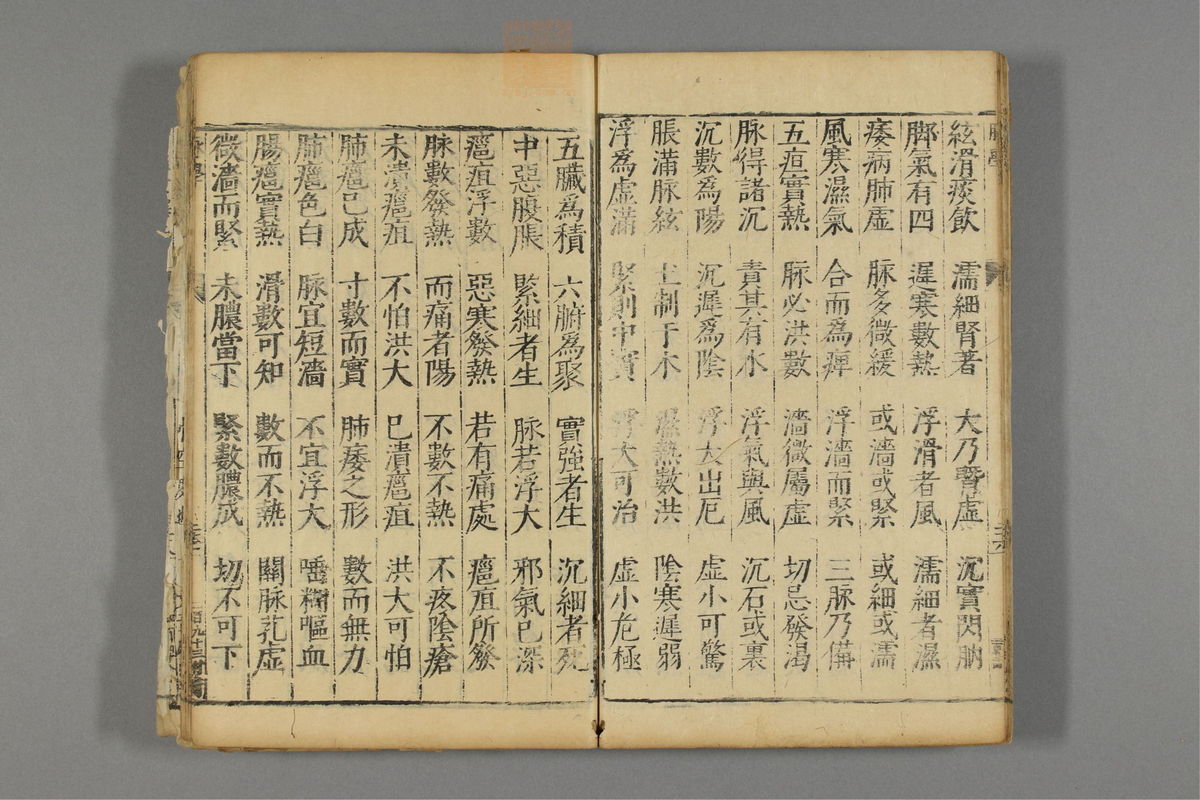 絃滑痰飲 濡細腎著 大乃腎虛 沉實閃肭
脚氣有四 遲寒數熱 浮滑者風 濡細者濕
痿病肺虛 脉多微緩 或濇或緊 或細或濡
風寒濕氣 合而為痺 浮濇而緊 三脉乃備
五疸實熱 脉必洪數 濇微屬虛 切忌發渴
脉得諸沉 責其有水 浮氣與風 沉石或裏
沉數為陽 沉遲為陰 浮大出厄 虛小可驚
脹滿脉絃 土制于木 濕熱數洪 陰寒遲弱
浮為虛滿 緊則中實 浮大可治 虛小危極
五臟為積 六腑為聚 實強者生 沉細者死
中惡腹脹 緊細者生 脉若浮大 邪氣已深
癰疽浮數 惡寒發熱 若有痛處 癰疽所發
脉數發熱 而痛者陽 不數不熱 不疼陰瘡
未潰癰疽 不怕洪大 已潰癰疽 洪大可怕
肺癰已成 寸數而實 肺痿之形 數而無力
肺癰色白 脉宜短濇 不宜浮大 唾糊嘔血
腸癰實熱 滑數可知 數而不熱 關脉芤虛
微濇而緊 未膿當下 緊數膿成 切不可下